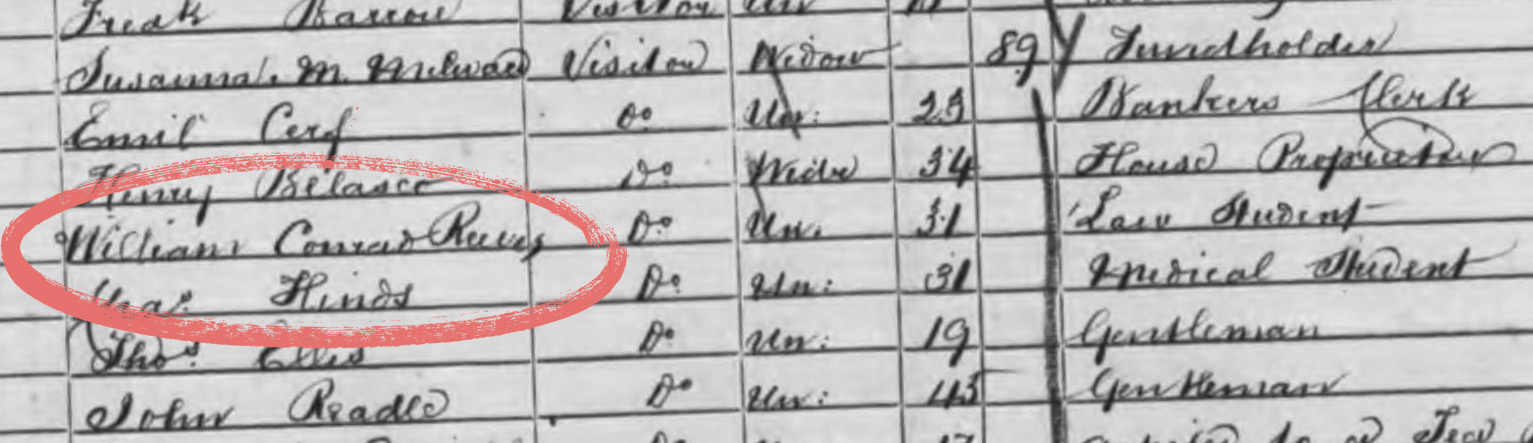 Fredk Barrow Visitor Un
Susannah M. Milward Visitor Widow 89 Fundholder
Emil Cerf Do Un: 23 Bankers Clerk
Henry Belasco Do Widr 34 House Proprietor
William Conrad Reeves Do Un. 31 Law Student
Chas. Hinds Do Un: 31 Medical Student
Thos. Ellis Do Un: 19 Gentleman
John Readle Do Un: 45 Gentleman